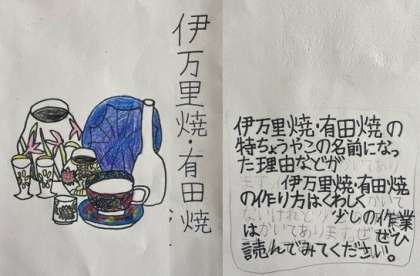 伊万里焼・有田焼
伊万里焼・有田焼の
特ちょうやこの名前になっ
た理由などが
伊万里焼・有田焼
の作り方はくわしく
少しの作業
は ぜひ
読んでみてください。